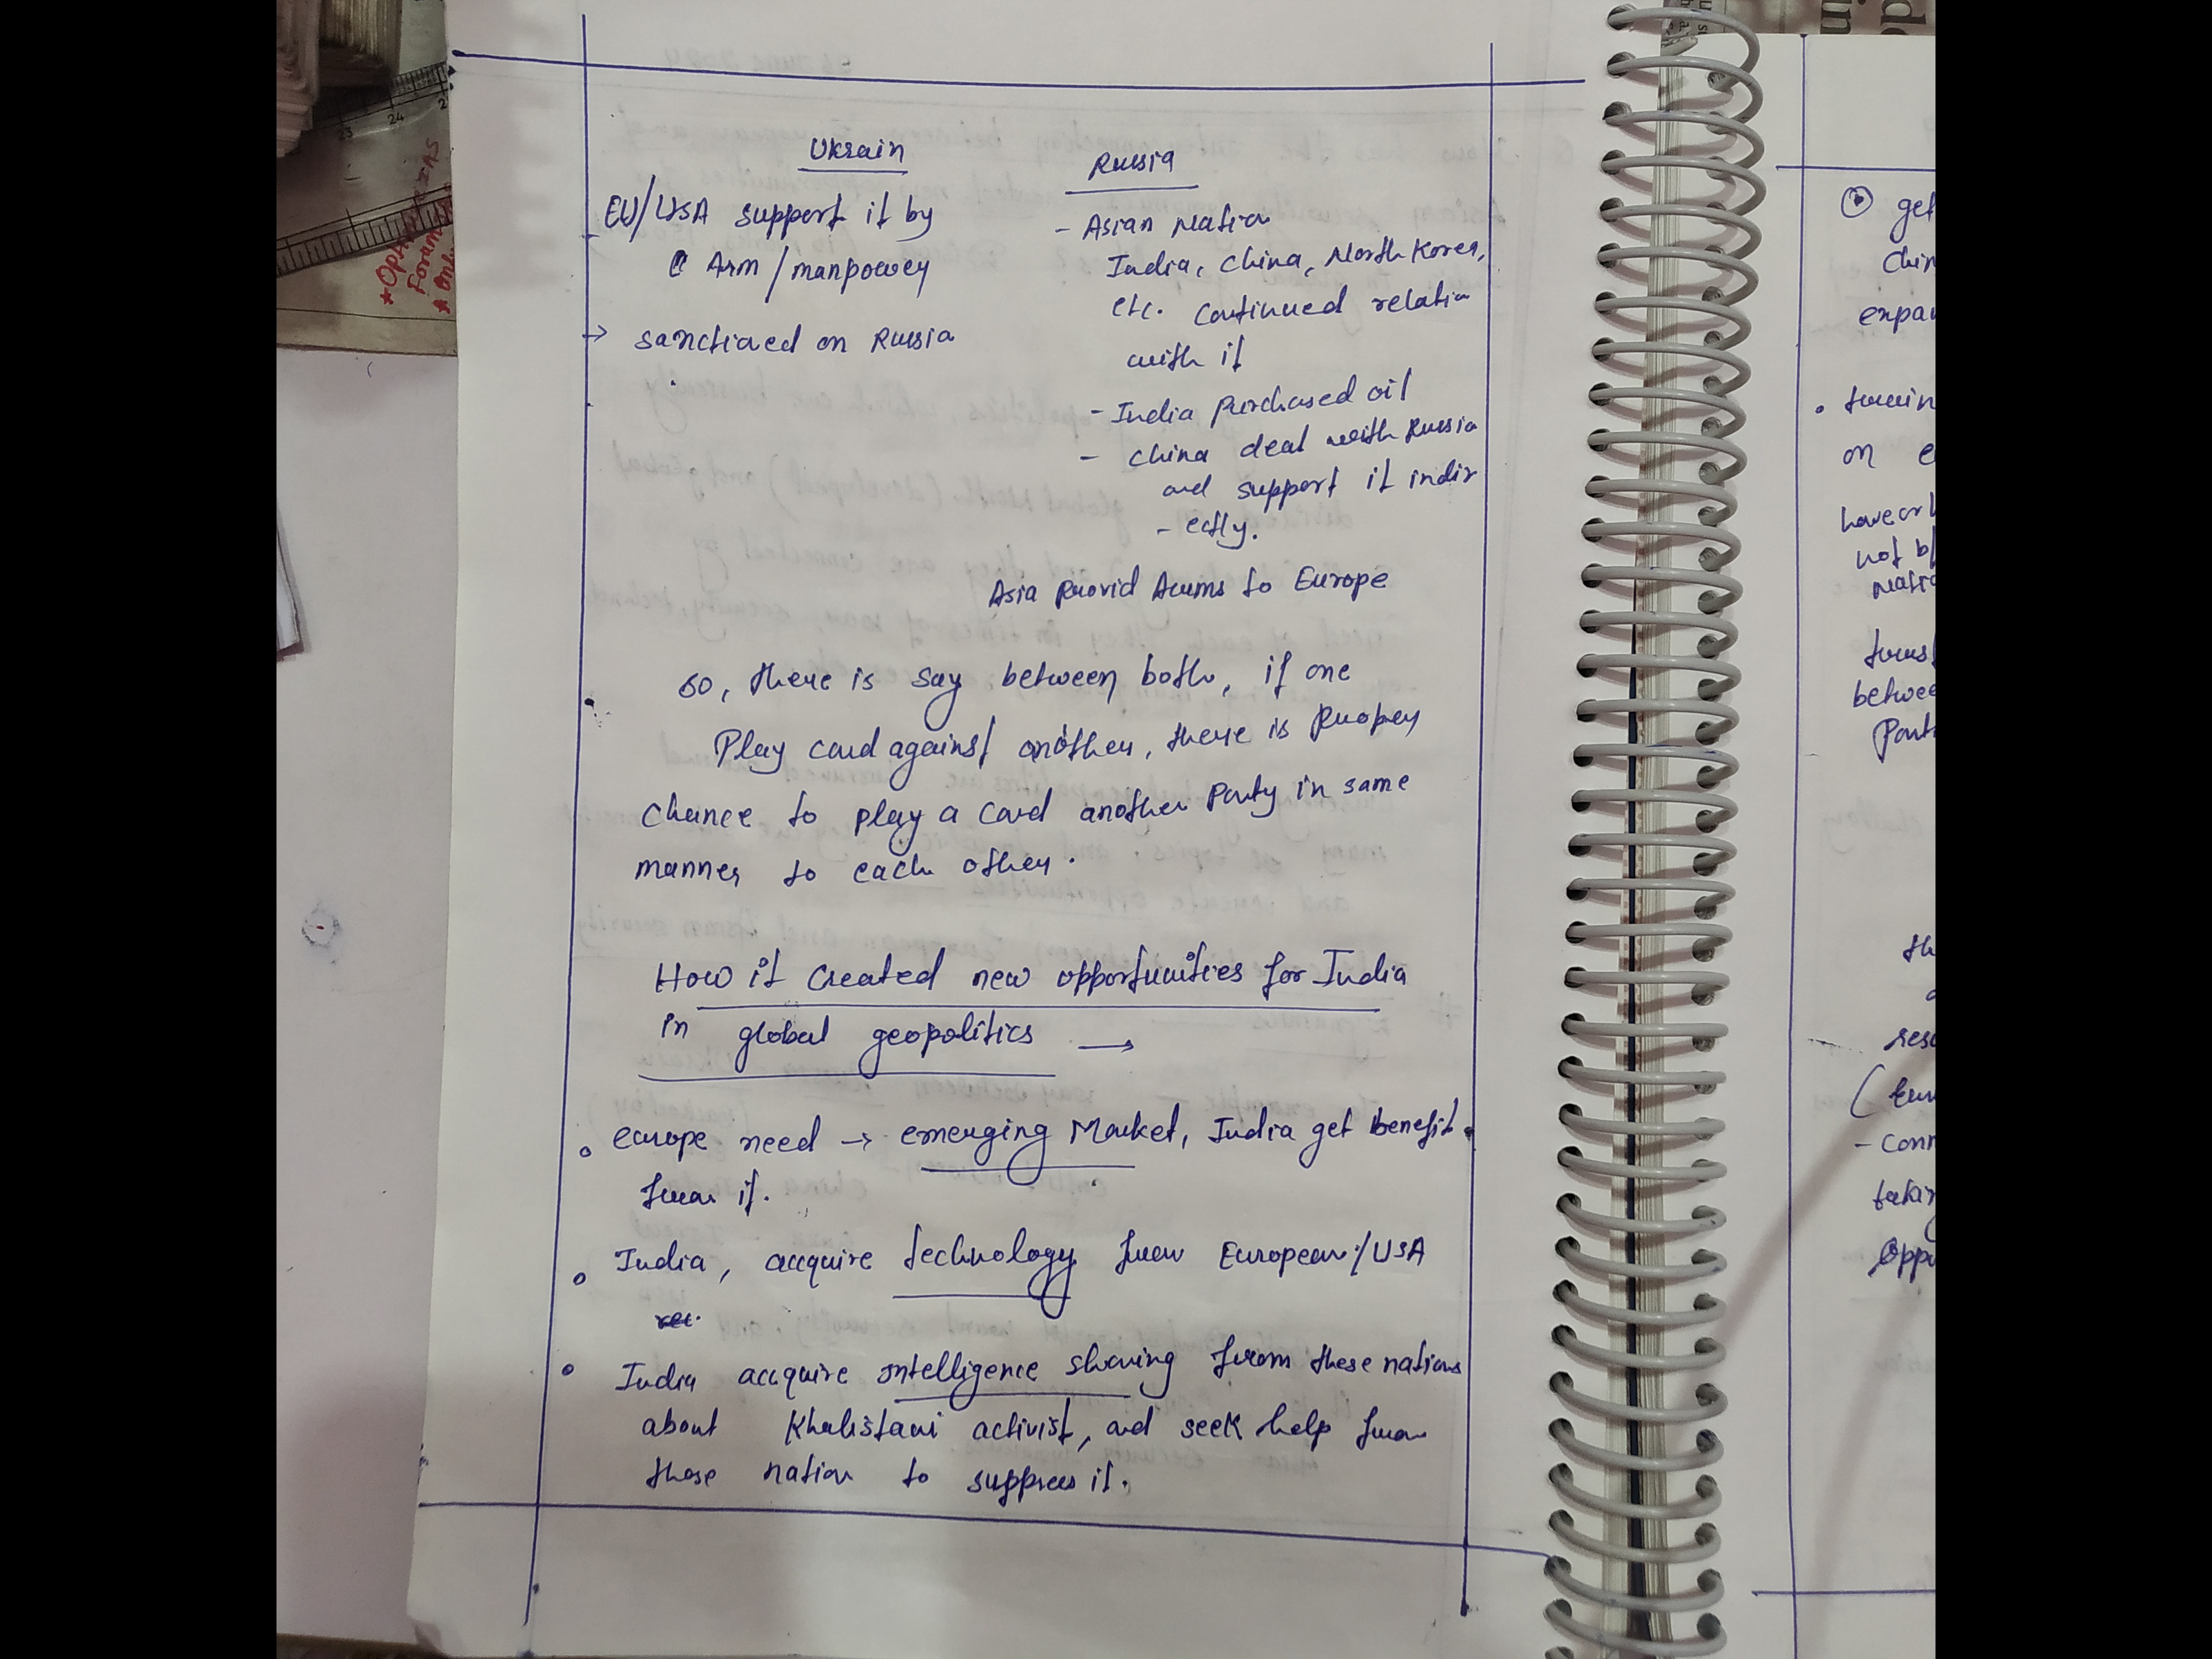 Ukrain
EU/USA support it by
Arm/manpower
→ sanctioned on Russia
Russia
- Asian Nation
India, China, North Korea,
etc. continued relation
with it
- India purchased oil
- China deal with Russia
and support it indir
- ectly.
Asia Provid Arms to Europe
so, there is say between both, if one
Play card against another, there is Proper
chance to play a card another Party in same
manner to each other.
How it created new opportunities for India
in global geopolitics →
Europe need → emerging Market, India get benefit
from it.
India, accquire technology from European/USA
India accquire intelligence sharing from these nations
about Khalistani activist, and seek help from
those nation to suppress it.
get
expa
on e
have or
not b
between
th
reso
- Conn
takin
Oppo